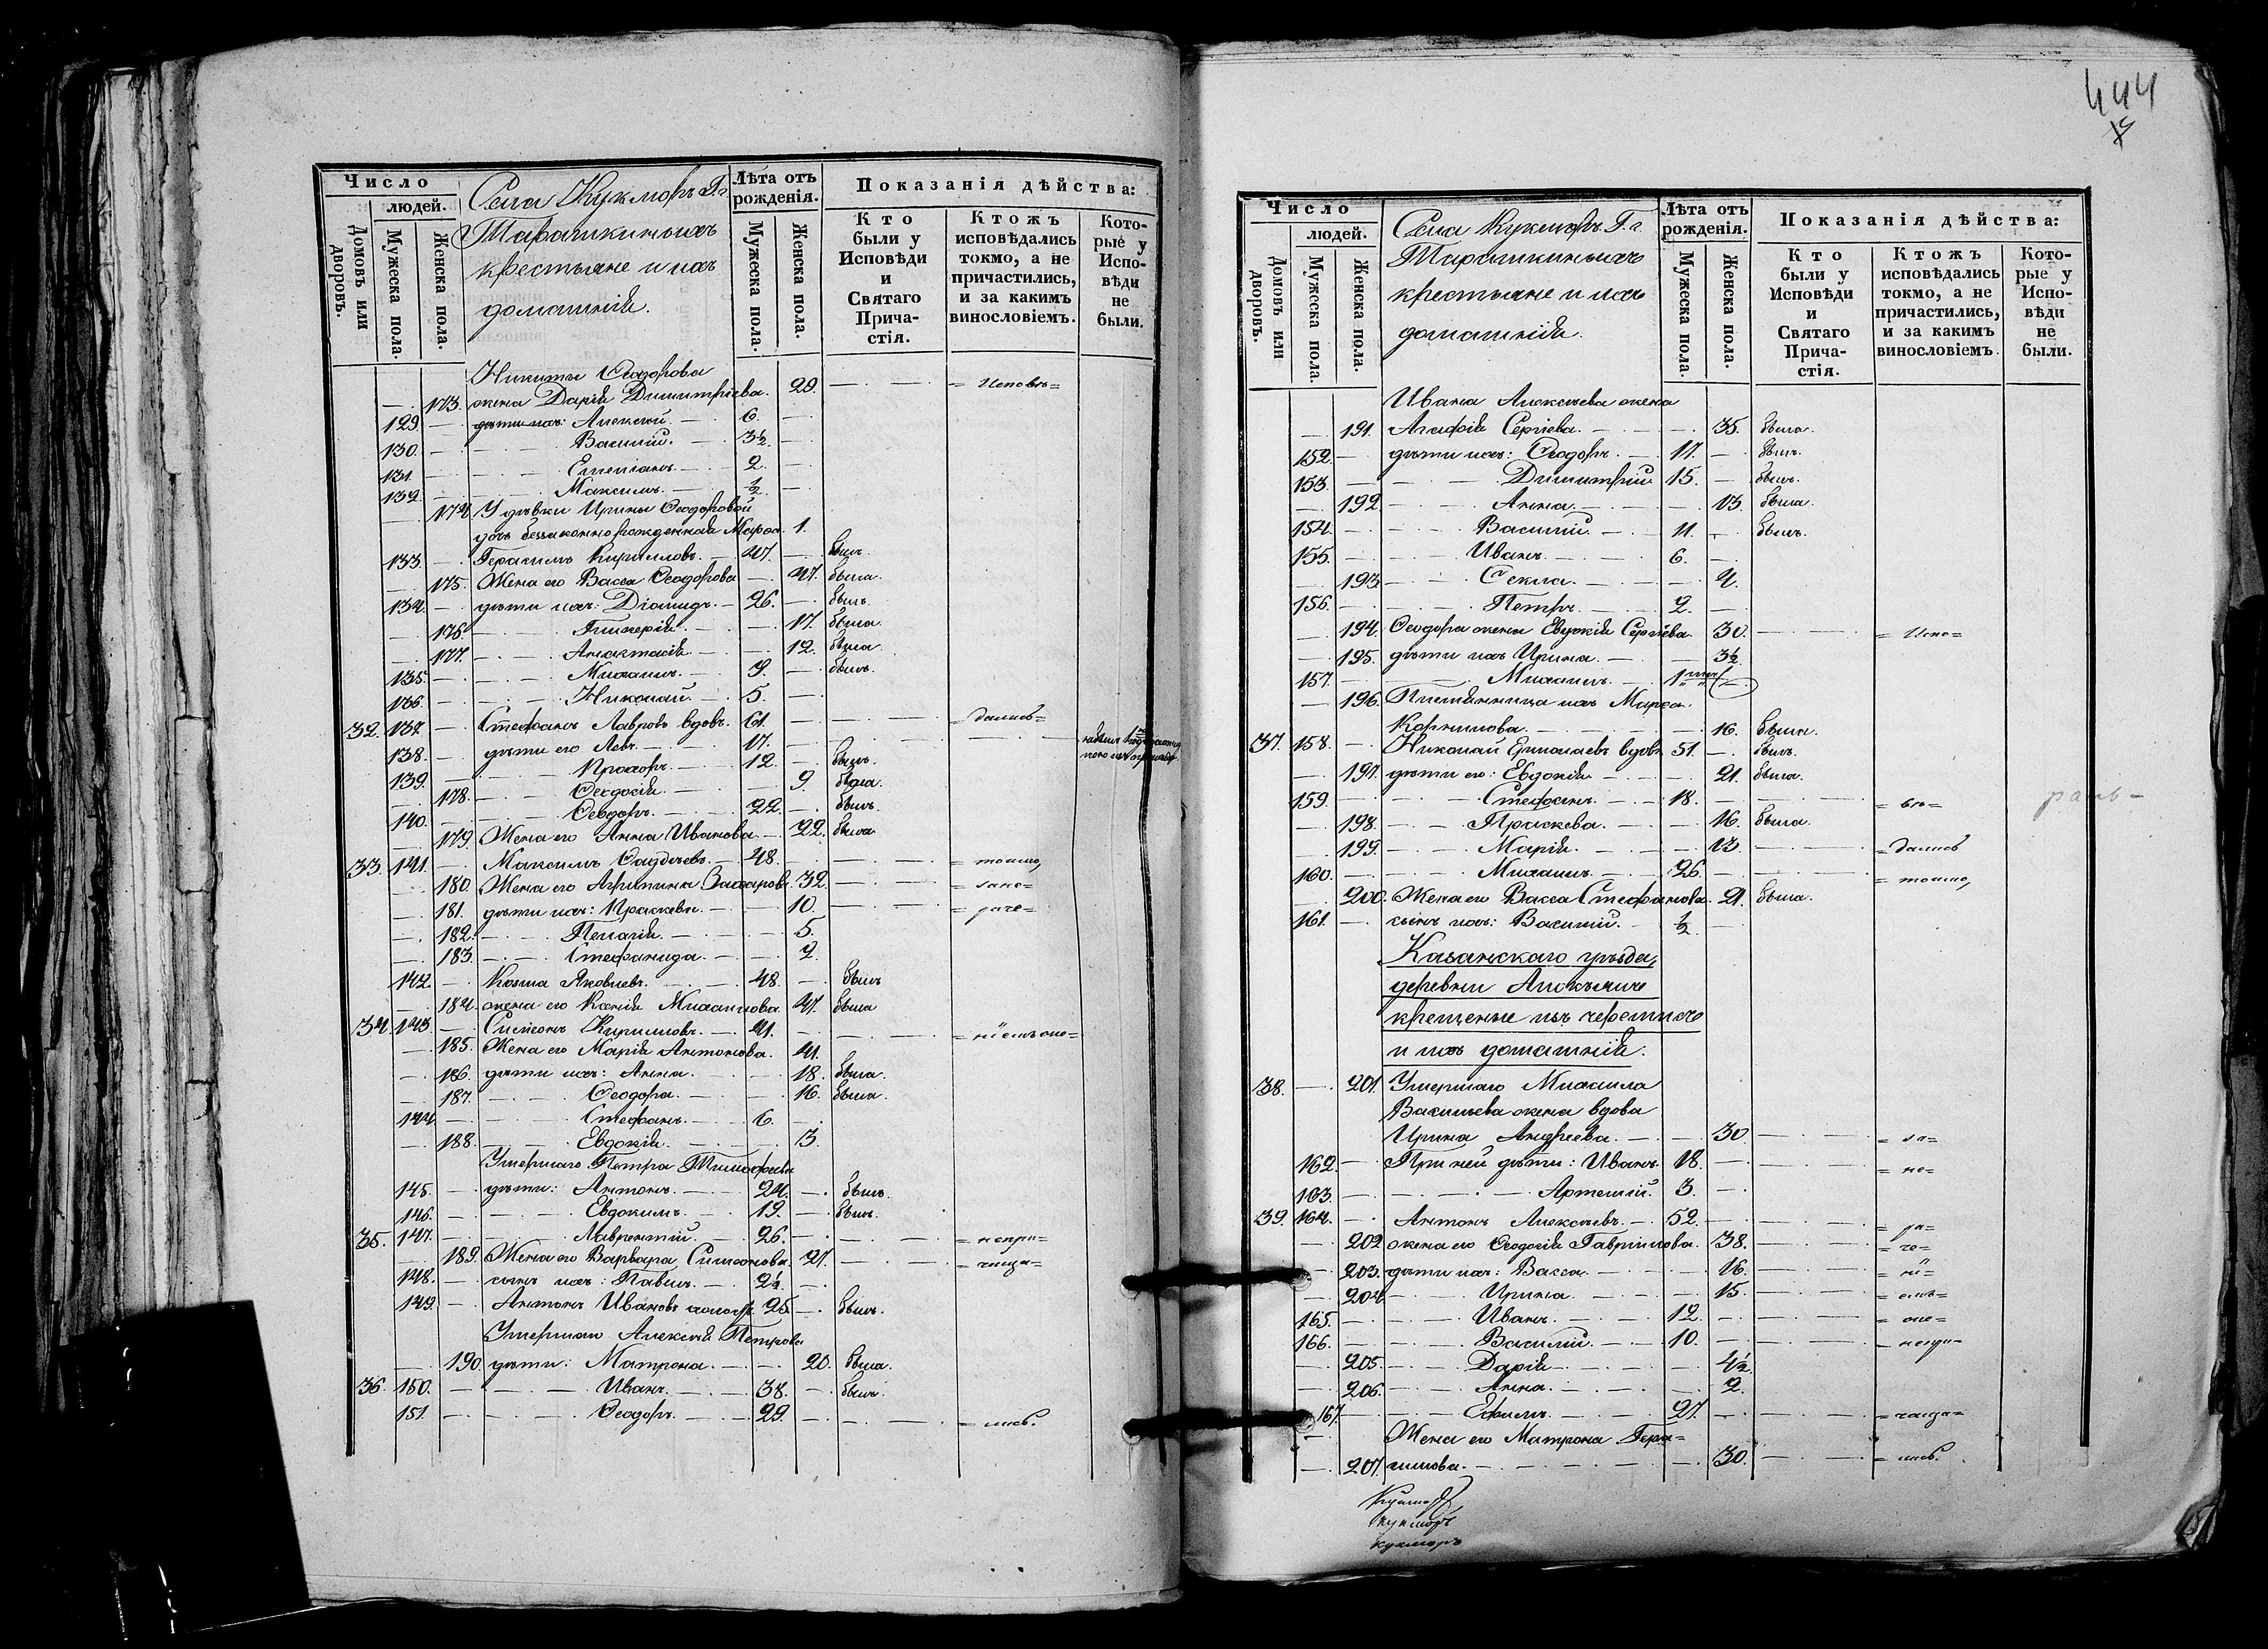 444
Число
людей.
Домовъ или дворовъ.
Мужеска пола.
Женска пола.
Села Кукморъ Г.г
Тарашкиныхъ
крестьяне и ихъ
домашнія.
Лѣта отъ рожденія.
Мужеска пола.
Женска пола.
Показанія дѣйства:
Кто были у Исповѣди и Святаго Прича-стія.
Ктожъ исповѣдались токмо, а не причастились, и за какимъ винословіемъ.
Кото-рые у Испо-вѣди не были.
Никиты Ѳеодорова
173. жена Дарія Димитріева. 29. = Исповѣ=
129. дѣти ихъ: Алексѣй. 6
130. Василій. 3½
131. Емеліанъ. 2.
132. Максимъ. ½
174. У дѣвки Ирины Ѳеодоровой
дочь беззаконнорожденная Марѳа. 1.
133. Герасимъ Кирилловъ. 47. былъ.
175. Жена его Васса Ѳеодорова 47. была.
134. дѣти ихъ: Діомидъ. 26. былъ.
176. Гликерія. 17. была.
177. Анастасія 12. была
135. Михаилъ. 9. былъ.
136. Николай. 5.
32. 137. Стефанъ Лавровъ вдовъ. 61. = дались=
138. дѣти его Левъ. 17.
139. Прохоръ. 12. былъ.
178. Ѳеодосія. 9 была.
140. Ѳеодоръ. 22. былъ.
179. Жена его Анна Иванова. 22. была
33. 141. Максимъ Авдѣевъ. 48. = токмо,
180. Жена его Агрипина Захарова. 32. = запо=
181. дѣти ихъ: Праскева. 10. = раче=
182. Пелагія. 5.
183. Стефанида. 2
142. Козма Яковлевъ. 48. былъ
184. жена его Ксенія Михаилова. 47. была
34. 143. Симеонъ Кирилловъ. 41. = ніемъ оне=
185. Жена его Марія Антонова. 41.
186. дѣти ихъ: Анна. 18. была.
187. Ѳеодора. 16. была.
144. Стефанъ. 6.
188. Евдокія. 3.
Умершаго Петра Тимофеева
145. дѣти: Антонъ. 24. былъ.
146. Евдокимъ. 19. былъ.
35. 147. Лаврентій. 26. = непри=
189. Жена его Варвара Симеонова. 27. = чаща=
148. сынъ ихъ: Павелъ. 2½
149. Антонъ Ивановъ холостъ. 25. былъ.
Умершаго Алексѣя Петрова
190. дѣти: Матрона. 20. была.
36. 150. Иванъ. 38. былъ.
151. Ѳеодоръ. 29. = лись.
Число
людей.
Домовъ или дворовъ.
Мужеска пола.
Женска пола.
Села Кукморъ Г.г
Тарашкиныхъ
крестьяне и ихъ
домашнія.
Лѣта отъ рожденія.
Мужеска пола.
Женска пола.
Показанія дѣйства:
Кто были у Исповѣди и Святаго Прича-стія.
Ктожъ исповѣдались токмо, а не причастились, и за какимъ винословіемъ.
Кото-рые у Испо-вѣди не были.
Ивана Алексѣева жена
191. Агафія Сергіева. 35. была.
152. дѣти ихъ: Ѳеодоръ. 17. былъ.
153. Димитрій. 15. былъ.
192 Анна. 13. была.
154. Василій. 11. былъ.
155. Иванъ. 6.
193 Ѳекла. 4.
156. Петръ. 2.
194. Ѳеодора жена Евдокія Сергіева. 30. = Испо=
195. дѣти ихъ Ирина. 3½.
157. Михаилъ. 1
196. Племянница ихъ Марѳа
Корнилова. 16. была.
37. 158. Николай Ермолаевъ вдовъ 51. былъ.
197. дѣти его: Евдокія. 21. была.
159. Стефанъ. 18. = вѣ=
198. Праскева. 16. была.
199. Марія. 13. = дались
160. Михаилъ. 26. = токмо,
200. Жена его Васса Стефанова. 21. была.
161. сынъ ихъ: Василій. ½
Казанскаго уѣзда,
деревни
крещеные изъ черемисъ
и ихъ домашнія.
38. 201. Умершаго Михаила
Васильева жена вдова
Ирина Андреева. 30 = за=
162. При ней дѣти: Иванъ. 18. = не=
163. Артемій. 3.
39. 164. Антонъ Алексѣевъ. 52. = ра=
202 жена его Ѳеодосія Гавриилова. 38. = че=
203. дѣти ихъ: Васса. 16. = ні=
204 Ирина. 15. = емъ=
165. Иванъ. 12. = оне=
166. Василій. 10. = непри=
205. Дарія 4½
206. Анна. 2.
167. Ефимъ. 27. = чаща=
Жена его Матрона Гера=
207. симова. 30. = лись.
Кукморъ
кукморъ